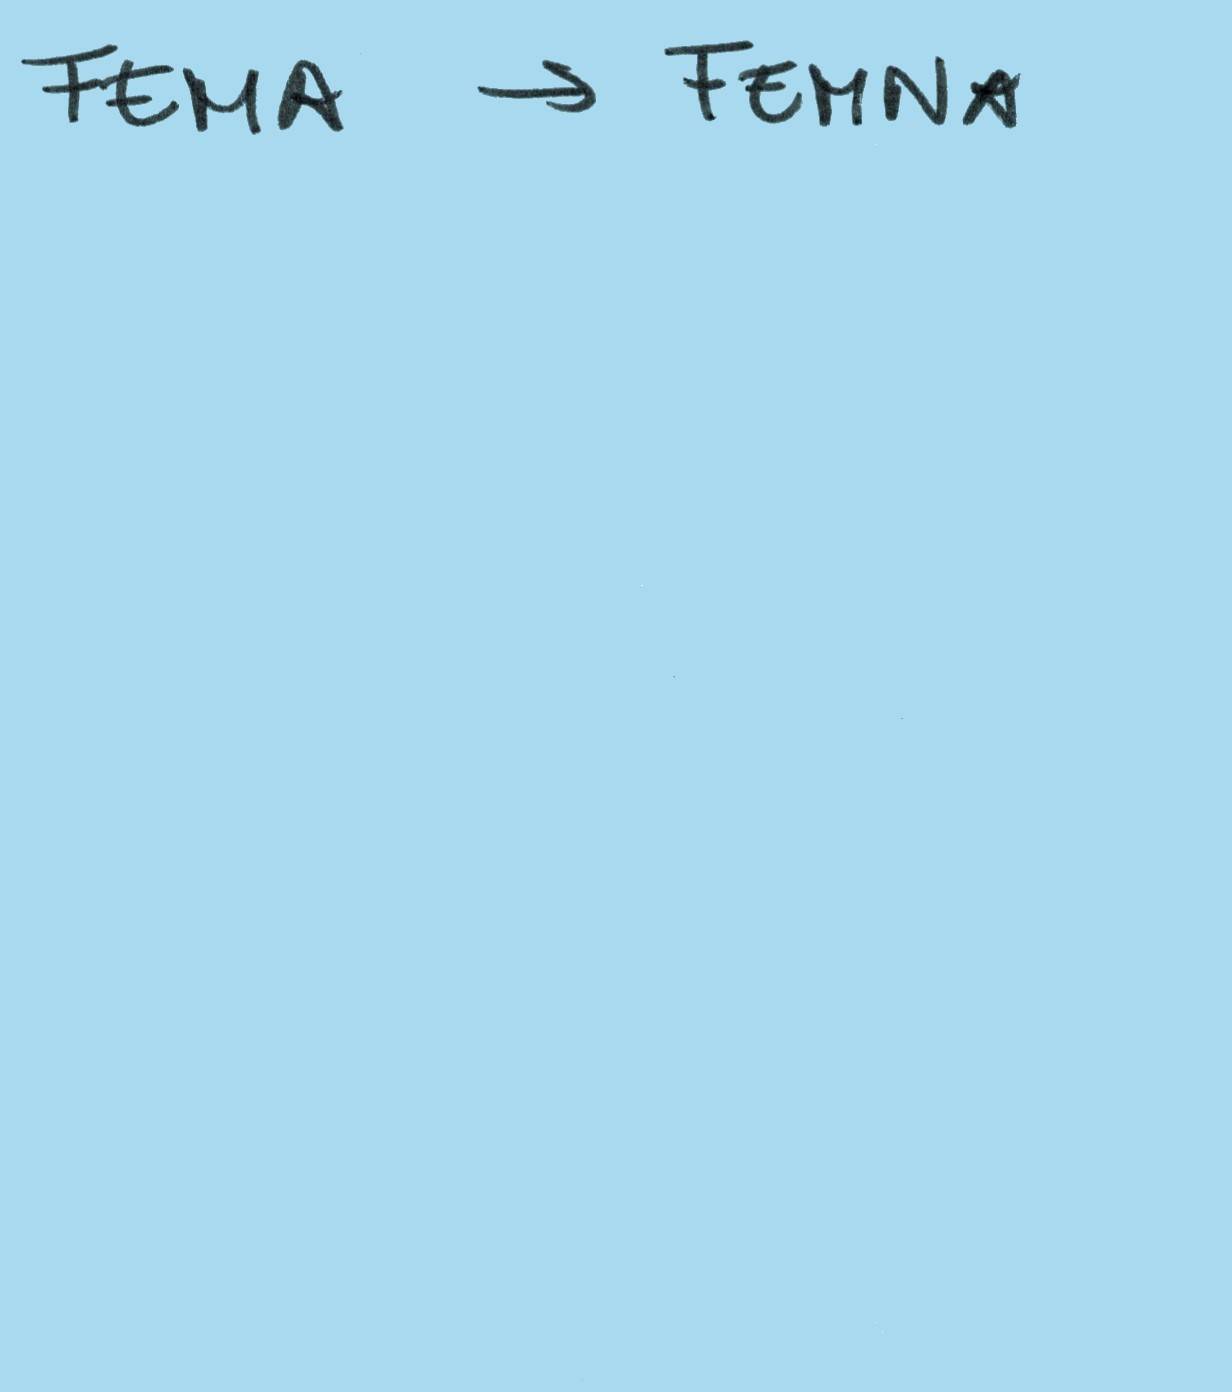 FEMA → FEMNA